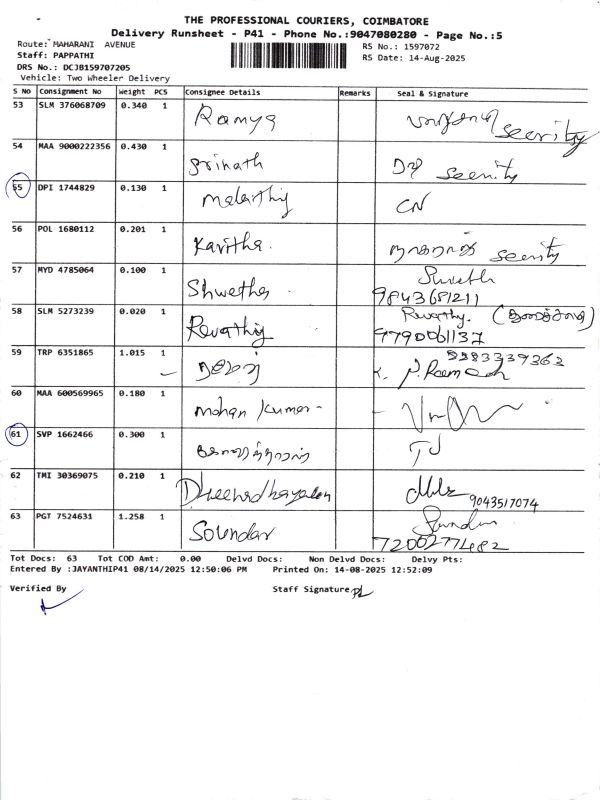 THE PROFESSIONAL COURIERS, COIMBATORE
Delivery Runsheet - P41 - Phone No.:9047080280 - Page No.:5
Route: MAHARANI AVENUE
RS No.: 1597072
Staff: PAPPATHI
RS Date: 14-Aug-2025
DRS No.: DCJB159707205
Vehicle: Two Wheeler Delivery
S No Consignment No Weight PCS Consignee Details Remarks Seal & Signature
53 SLM 376068709 0.340 1 Ramya
54 MAA 9000222356 0.430 1 Srinath
55 DPI 1744829 0.130 1 CN
56 POL 1680112 0.201 1 Kavitha.
57 MYD 4785064 0.100 1 Shwetha 9843681211
58 SLM 5273239 0.020 1 Revathy Revathy. 9790061137
59 TRP 6351865 1.015 1
60 MAA 600569965 0.180 1 Mohan Kumar -
61 SVP 1662466 0.300 1 TJ
62 TMI 30369075 0.210 1 9043517074
63 PGT 7524631 1.258 1 Soundar
Tot Docs: 63 Tot COD Amt: 0.00 Delvd Docs: Non Delvd Docs: Delvy Pts:
Entered By :JAYANTHIP41 08/14/2025 12:50:06 PM Printed On: 14-08-2025 12:52:09
Verified By Staff Signature